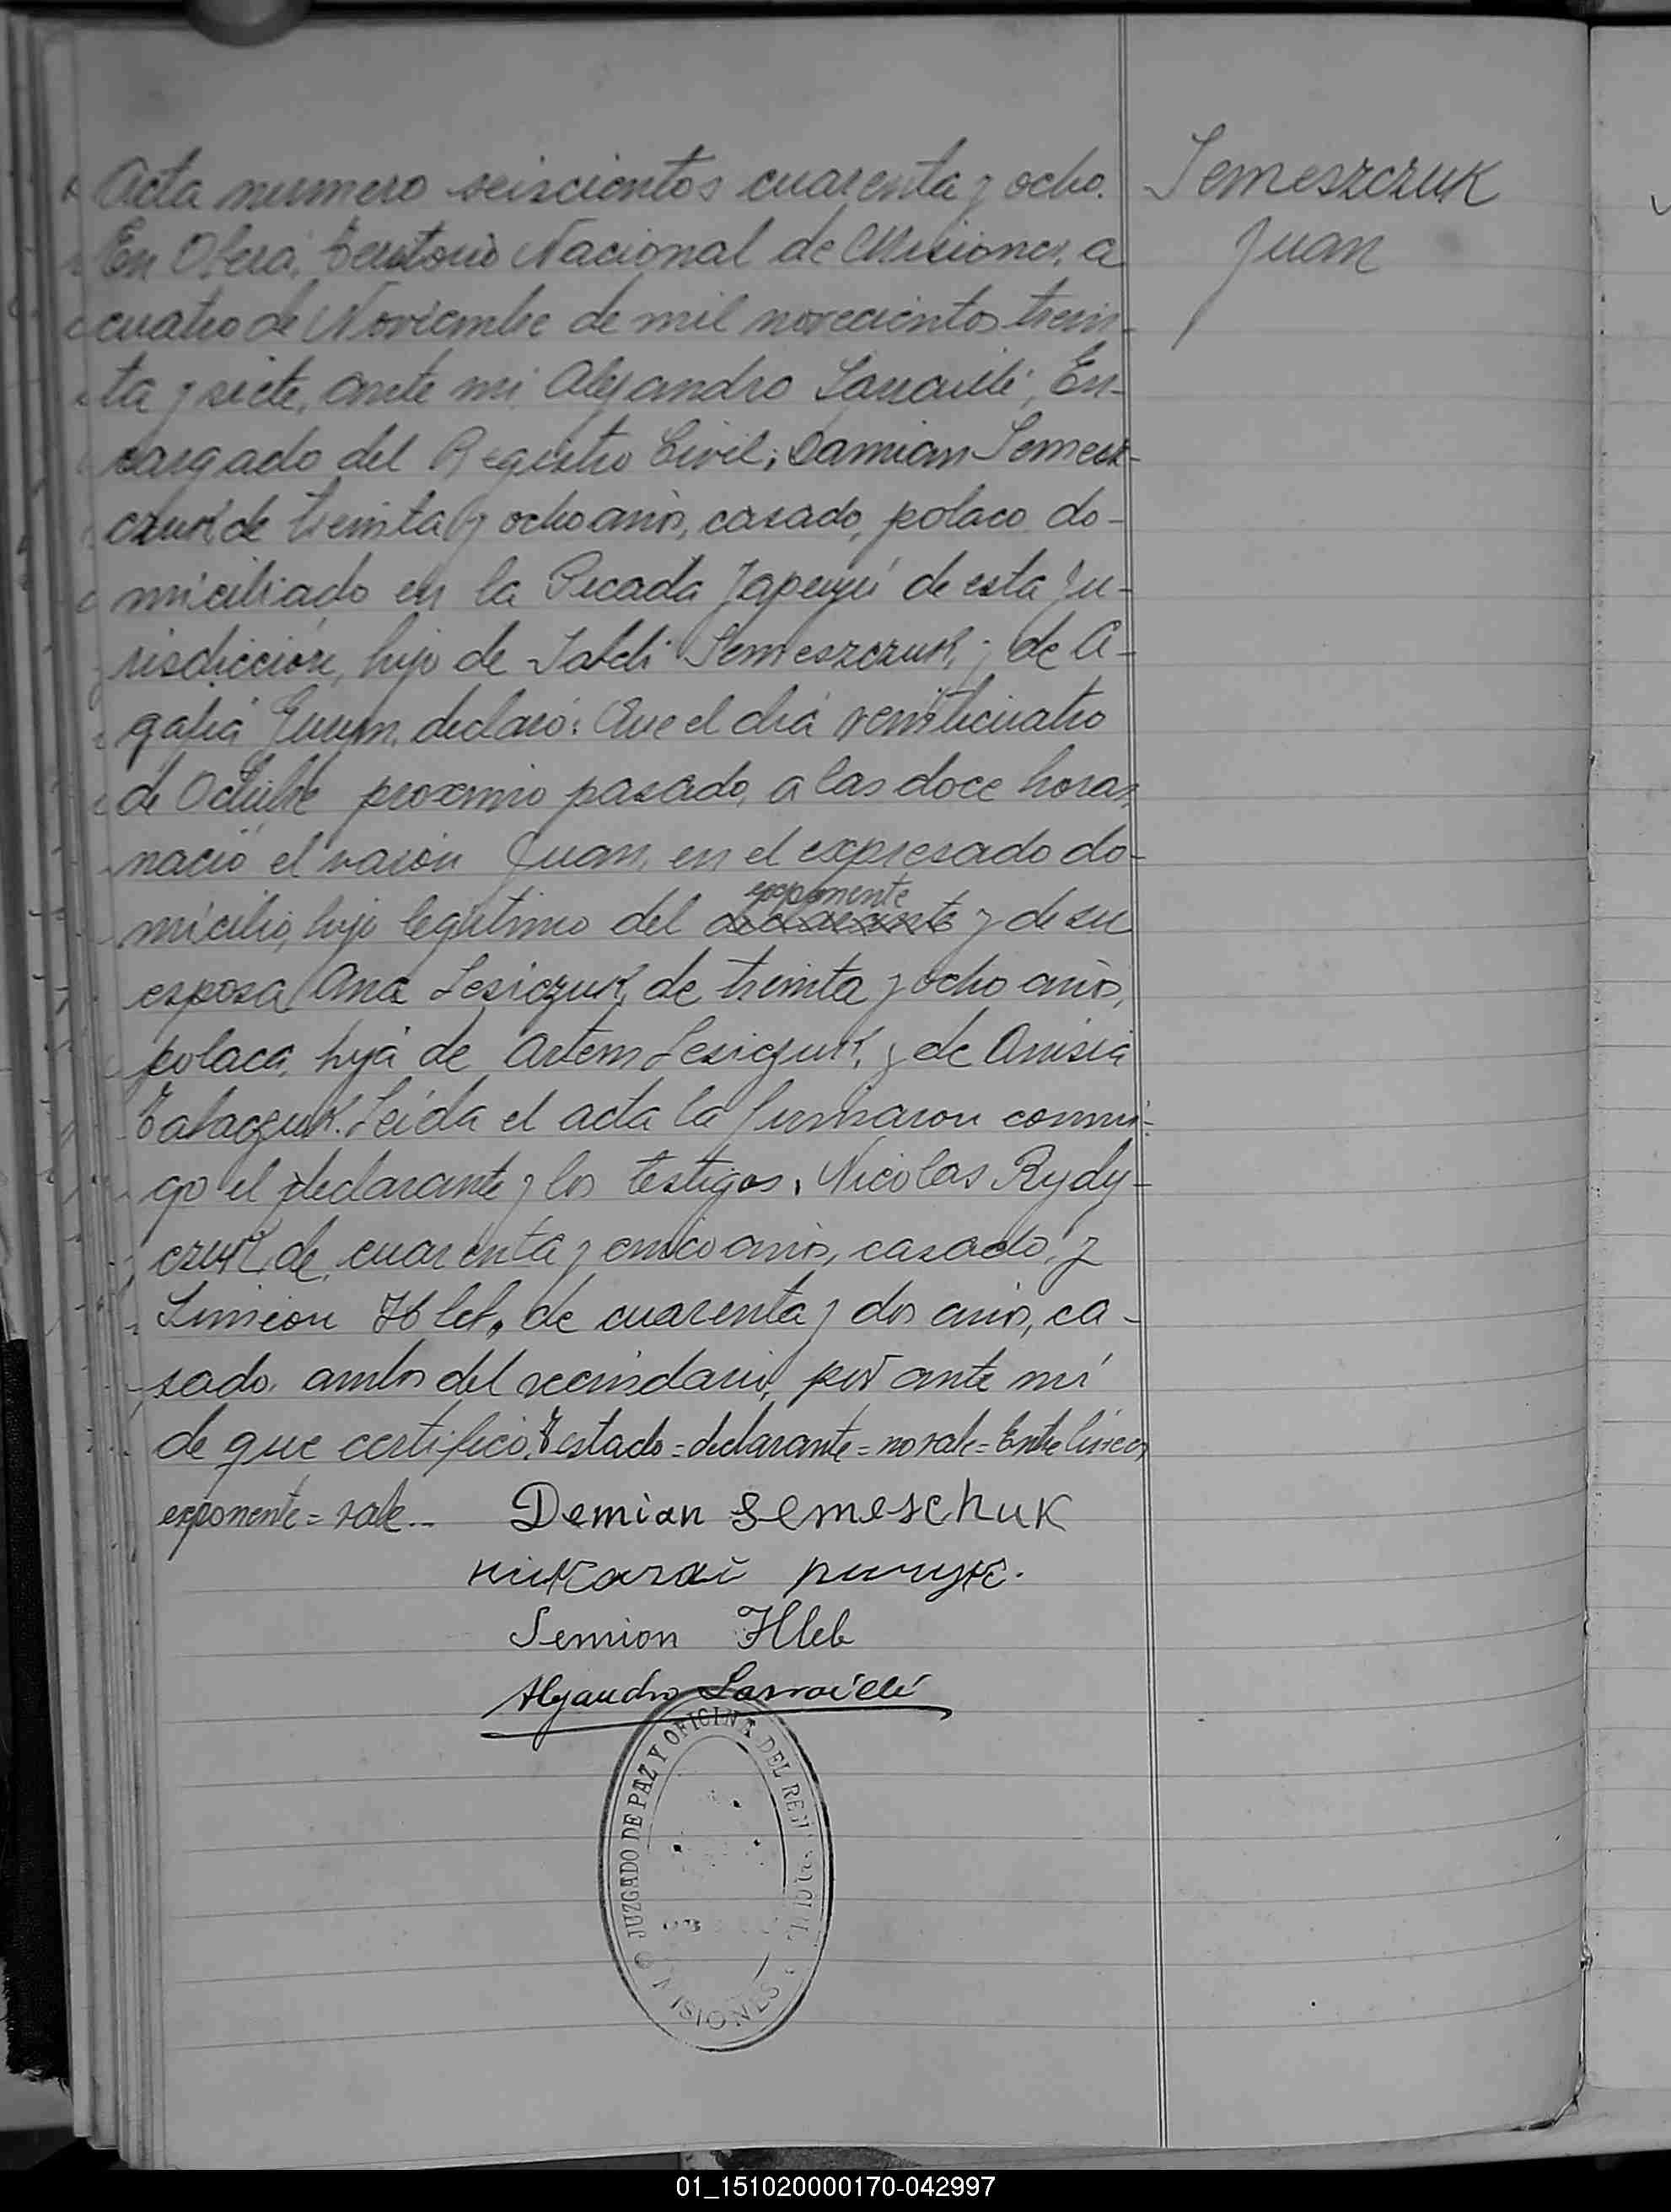 Acta numero seiscientos cuarenta y ocho.
Semeszczuk
Juan
En Oberá, Territorio Nacional de Misiones, a
cuatro de Noviembre de mil novecientos trein-
ta y siete, ante mi Alejandro Sarrailli, En-
cargado del Registro Civil; Damian Semesz-
czuk de treinta y ocho años, casado, polaco do-
miciliado en la Picada Yapeyú de esta Ju-
risdicción, hijo de Semeszczuk, y de A-
gafia declaró: Que el dia veinticuatro
de Octubre proximo pasado, a las doce horas,
nació el varón Juan, en el expresado do-
exponente
micilio, hijo legitimo del declarante y de su
esposa Ana Lesiczuk, de treinta y ocho años,
polaca, hija de Artem Lesiczuk, y de Anisia
Leida el acta la firmaron conmi-
go el declarante y los testigos, Nicolas Rydy-
czuk, de cuarenta y cinco años, casado, y
Simeon Hleb, de cuarenta y dos años, ca-
sado, ambos del vecindario, por ante mí
de que certifico. Testado=declarante=no vale=Entre lineas,
exponente=vale.-
Demian Semeschuk
Semion Hleb
Alejandro Sarrailli
JUZGADO DE PAZ Y OFICINA DEL
MISIONES
01_151020000170-042997